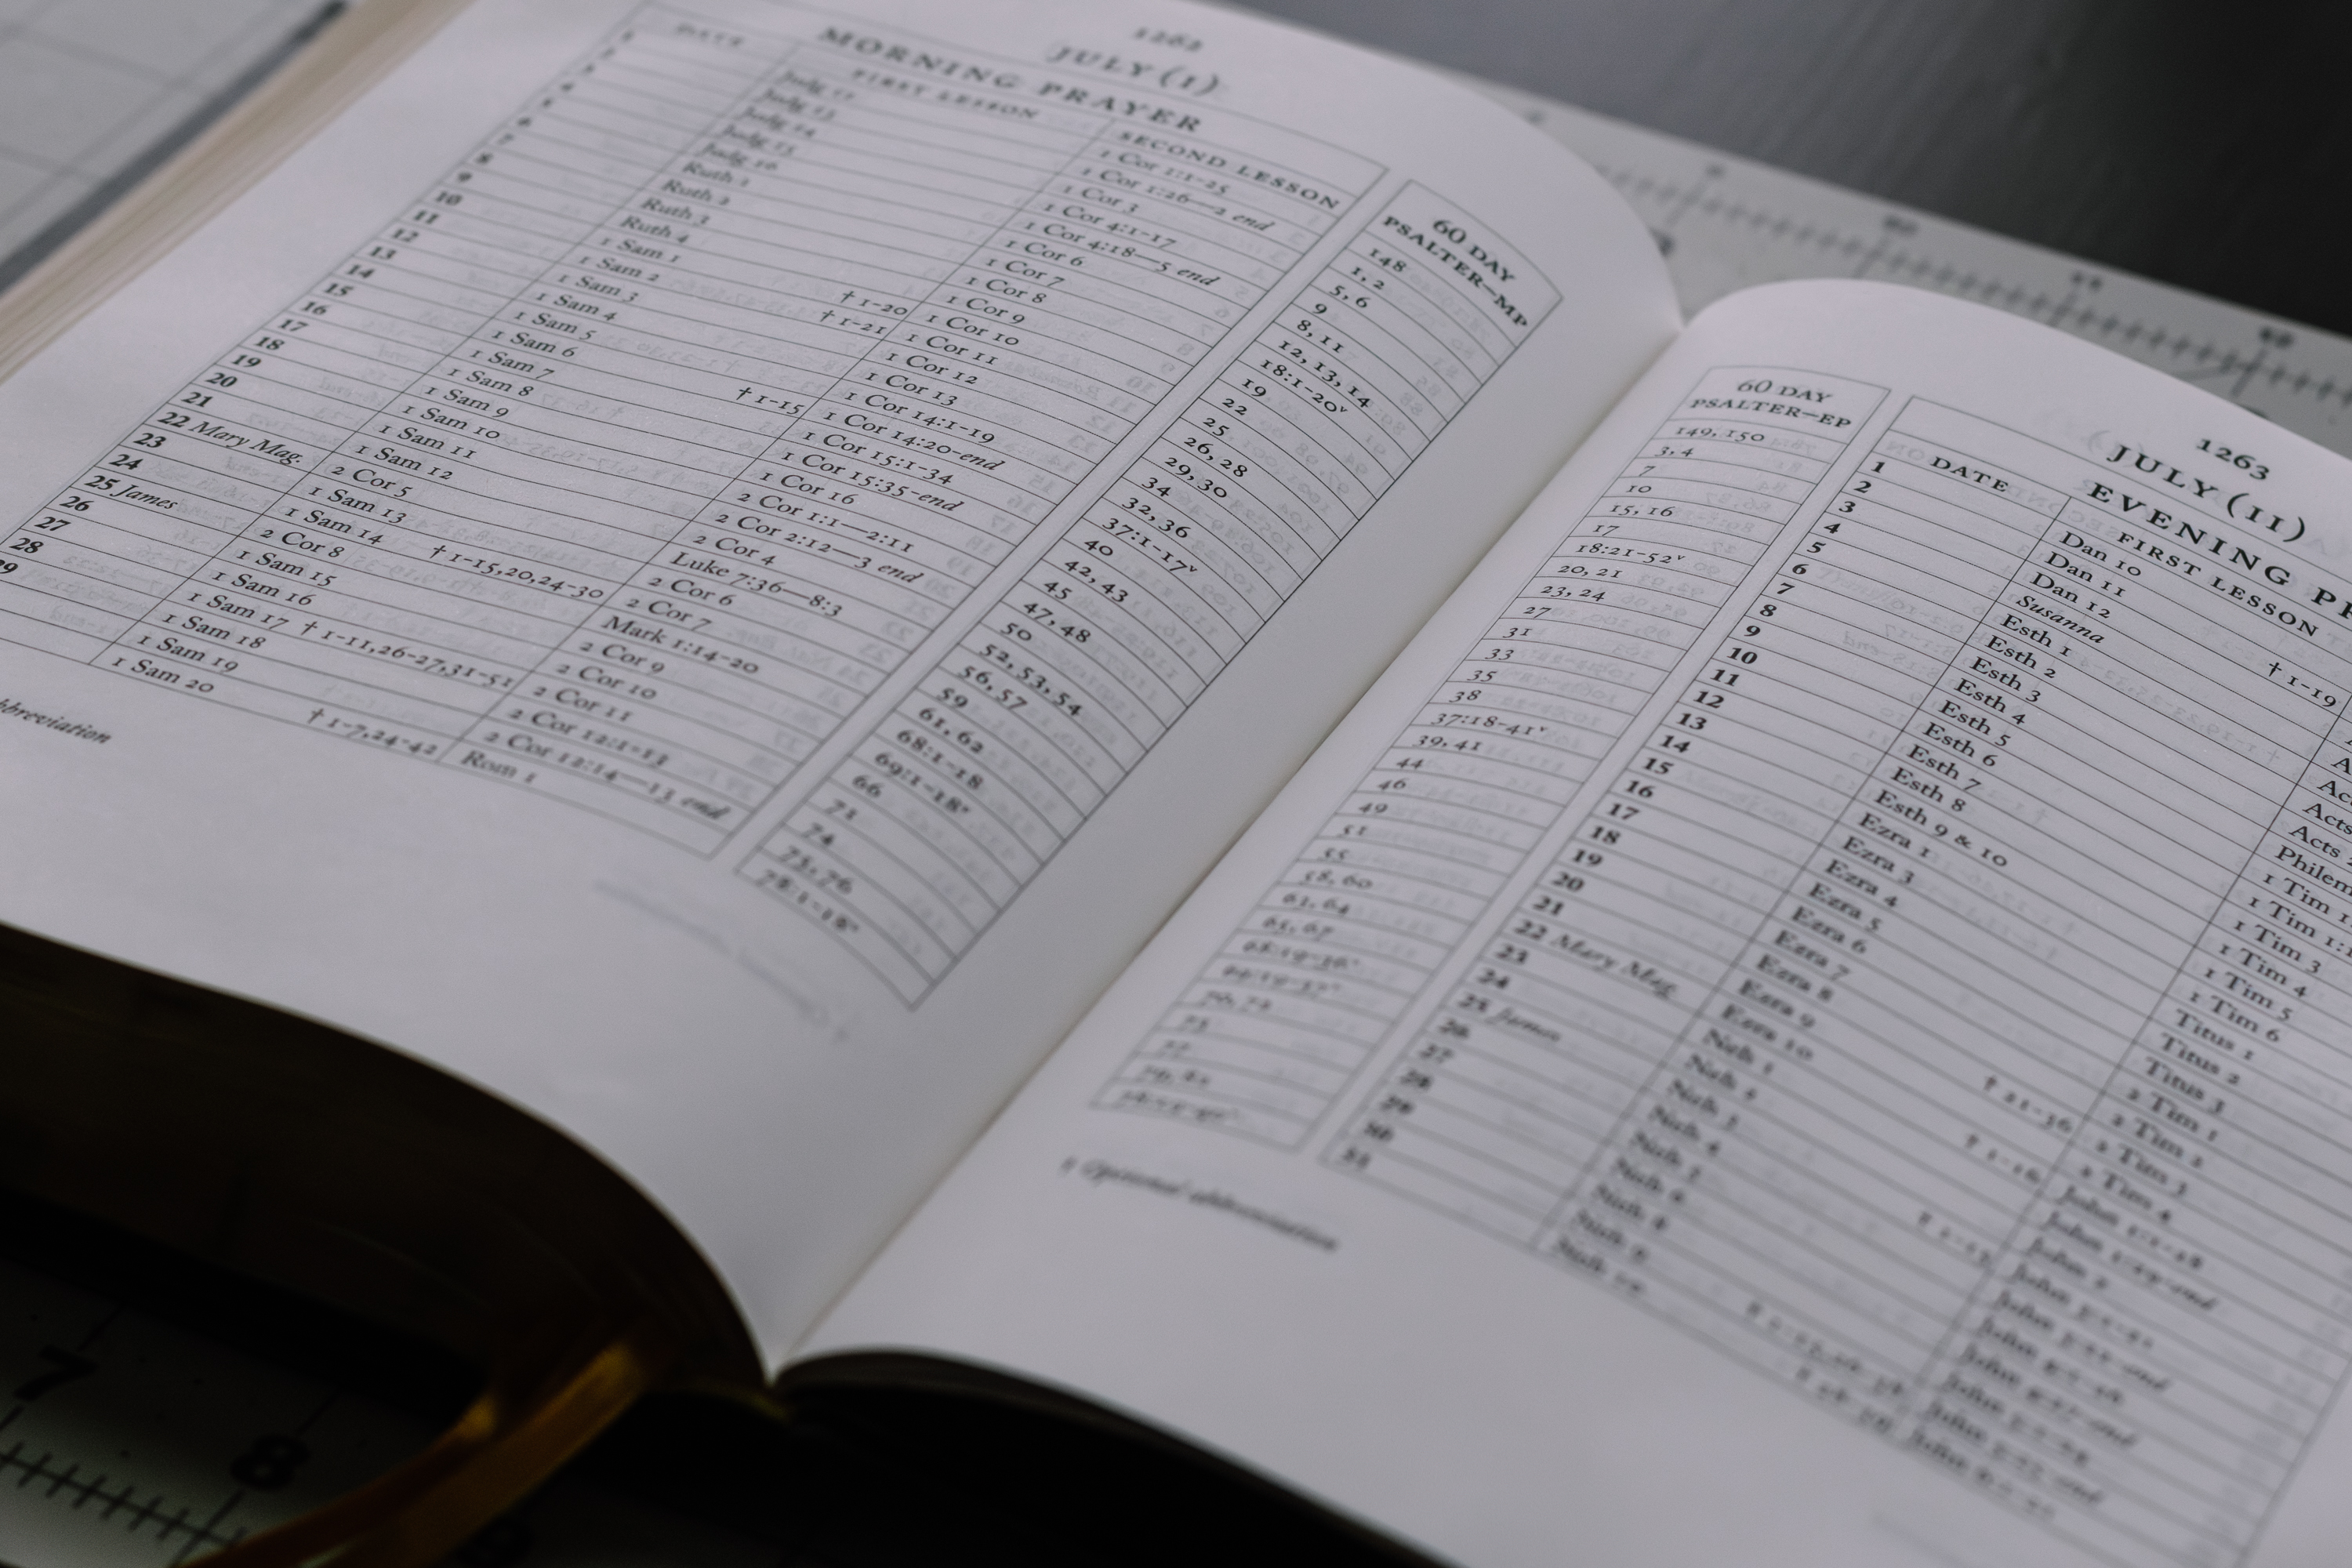 1262
JULY (I)
MORNING PRAYER
DATE
1
2
3
4
5
6
7
8
9
10
11
12
13
14
15
16
17
18
19
20
21
22 Mary Mag.
23
24
25 James
26
27
28
29
FIRST LESSON
Judg 12
Judg 13
Judg 14
Judg 15
Judg 16
Ruth 1
Ruth 2
Ruth 3
Ruth 4
1 Sam 1 † 1-20
1 Sam 2 † 1-21
1 Sam 3
1 Sam 4
1 Sam 5
1 Sam 6 † 1-15
1 Sam 7
1 Sam 8
1 Sam 9
1 Sam 10
1 Sam 11
1 Sam 12
2 Cor 5
1 Sam 13
1 Sam 14 † 1-15,20,24-30
2 Cor 8
1 Sam 15
1 Sam 16
1 Sam 17 † 1-11,26-27,31-51
1 Sam 18
1 Sam 19
1 Sam 20 † 1-7,24-42
SECOND LESSON
1 Cor 1:1-25
1 Cor 1:26—2 end
1 Cor 3
1 Cor 4:1-17
1 Cor 4:18—5 end
1 Cor 6
1 Cor 7
1 Cor 8
1 Cor 9
1 Cor 10
1 Cor 11
1 Cor 12
1 Cor 13
1 Cor 14:1-19
1 Cor 14:20-end
1 Cor 15:1-34
1 Cor 15:35-end
1 Cor 16
2 Cor 1:1—2:11
2 Cor 2:12—3 end
2 Cor 4
Luke 7:36—8:3
2 Cor 6
2 Cor 7
Mark 1:14-20
2 Cor 9
2 Cor 10
2 Cor 11
2 Cor 12:1-13
2 Cor 12:14—13 end
Rom 1
60 DAY
PSALTER—MP
148
1, 2
5, 6
9
8, 11
12, 13, 14
18:1-20ᵛ
19
22
25
26, 28
29, 30
34
32, 36
37:1-17ᵛ
40
42, 43
45
47, 48
50
52, 53, 54
56, 57
59
61, 62
68:1-18
69:1-18ᵛ
66
71
74
75, 76
78:1-18ᵛ
abbreviation
60 DAY
PSALTER—EP
149, 150
3, 4
7
10
15, 16
17
18:21-52ᵛ
20, 21
23, 24
27
31
33
35
38
37:18-41ᵛ
39, 41
44
46
49
51
55
58, 60
65, 67
70, 72
73
77
† Optional abbreviation
1263
JULY (II)
EVENING PR
DATE
1
2
3
4
5
6
7
8
9
10
11
12
13
14
15
16
17
18
19
20
21
22 Mary Mag.
23
24
25 James
26
27
28
29
30
31
FIRST LESSON
Dan 10
Dan 11
Dan 12
Susanna
Esth 1 † 1-19
Esth 2
Esth 3
Esth 4
Esth 5
Esth 6
Esth 7
Esth 8
Esth 9 & 10
Ezra 1
Ezra 3
Ezra 4
Ezra 5
Ezra 6
Ezra 7
Ezra 8 † 21-36
Ezra 9
Ezra 10 † 1-16
Neh 1
Acts
Acts
Philem
1 Tim 1
1 Tim 1:1
1 Tim 3
1 Tim 4
1 Tim 5
1 Tim 6
Titus 1
Titus 2
Titus 3
2 Tim 1
2 Tim 2
2 Tim 3
2 Tim 4
John 1:1-28
John 1:29-end
John 2